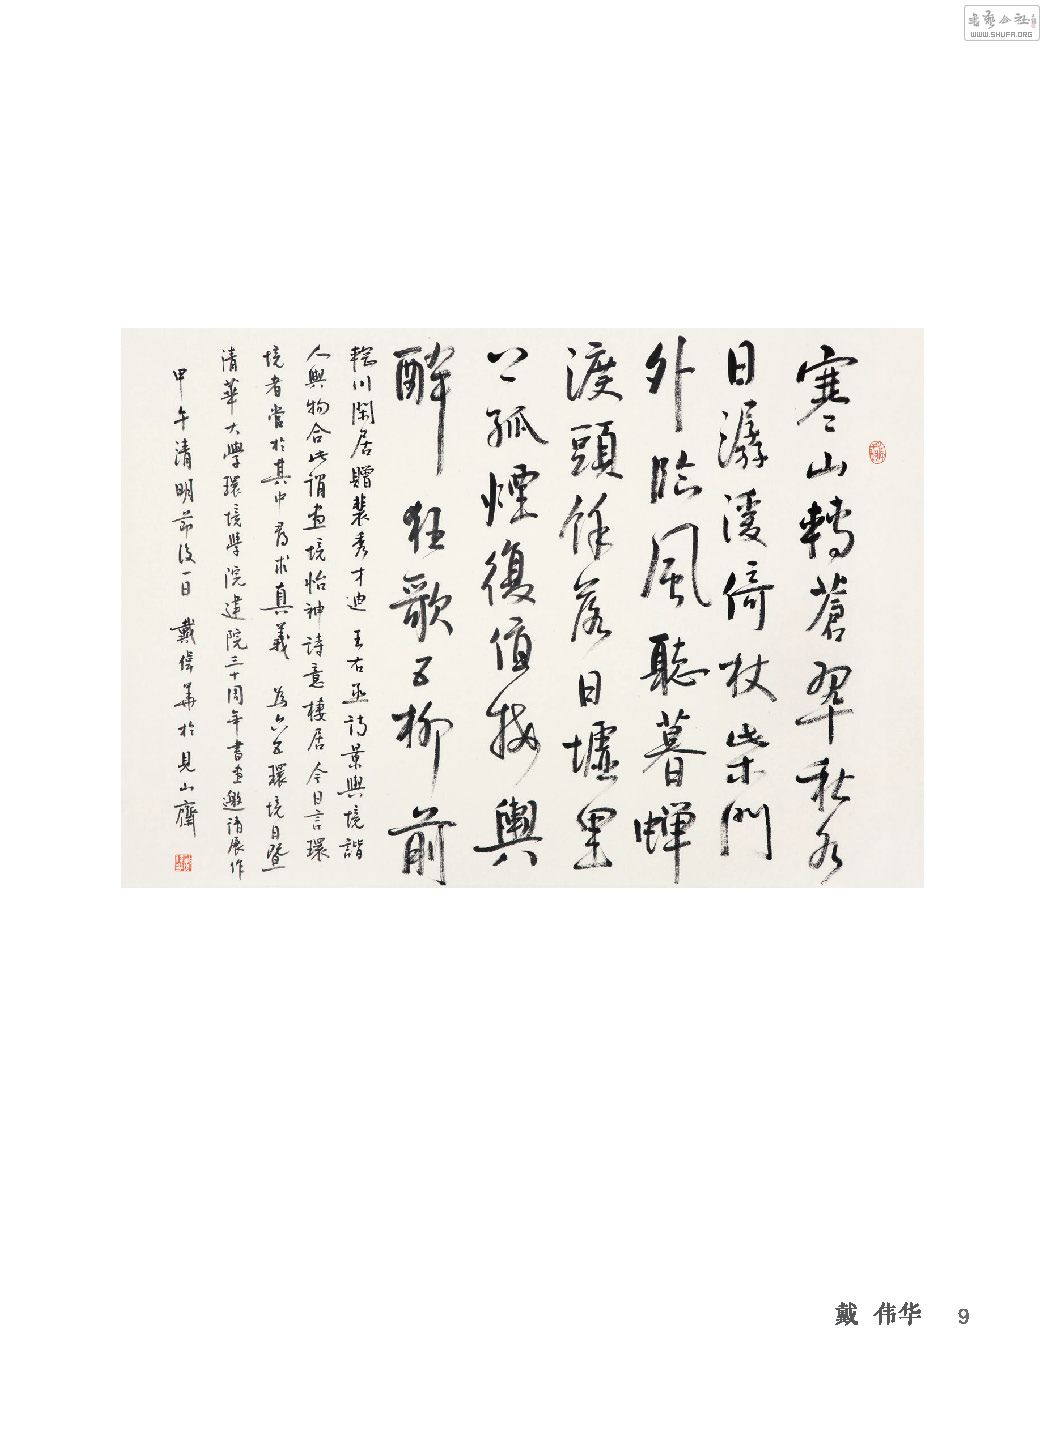 书艺公社
WWW.SHUFA.ORG
寒山轉蒼翠秋水
日潺湲倚杖柴門
外臨風聽暮蟬
渡頭餘落日墟里
上孤煙復值接輿
醉狂歌五柳前
輞川閑居贈裴秀才迪 王右丞詩景與境諧
人與物合此謂畫境怡神詩意棲居今日言環
境者當於其中尋求真義 為六五環境日暨
清華大學環境學院建院三十周年書畫邀請展作
甲午清明節後一日 戴偉華於見山齋
戴 伟华 9